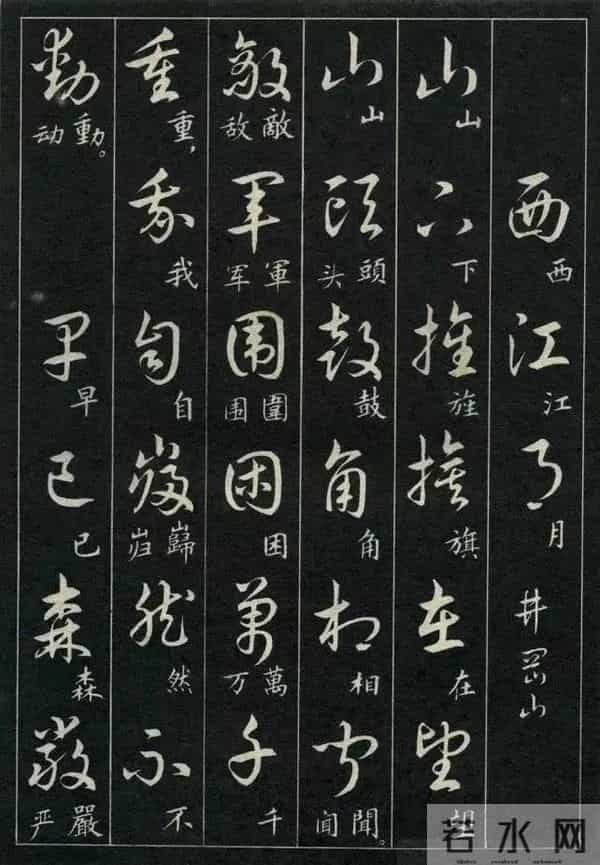 西江月井岡山
西江月
山下旌旗在望
山下旌旗在望
山頭鼓角相聞
山頭头鼓角相聞。闻
敵軍圍困萬千
敵敌軍军圍围困萬万千
重我自巋然不
重，我自巋岿然不
動早已森嚴
動。动早已森嚴严
若水网